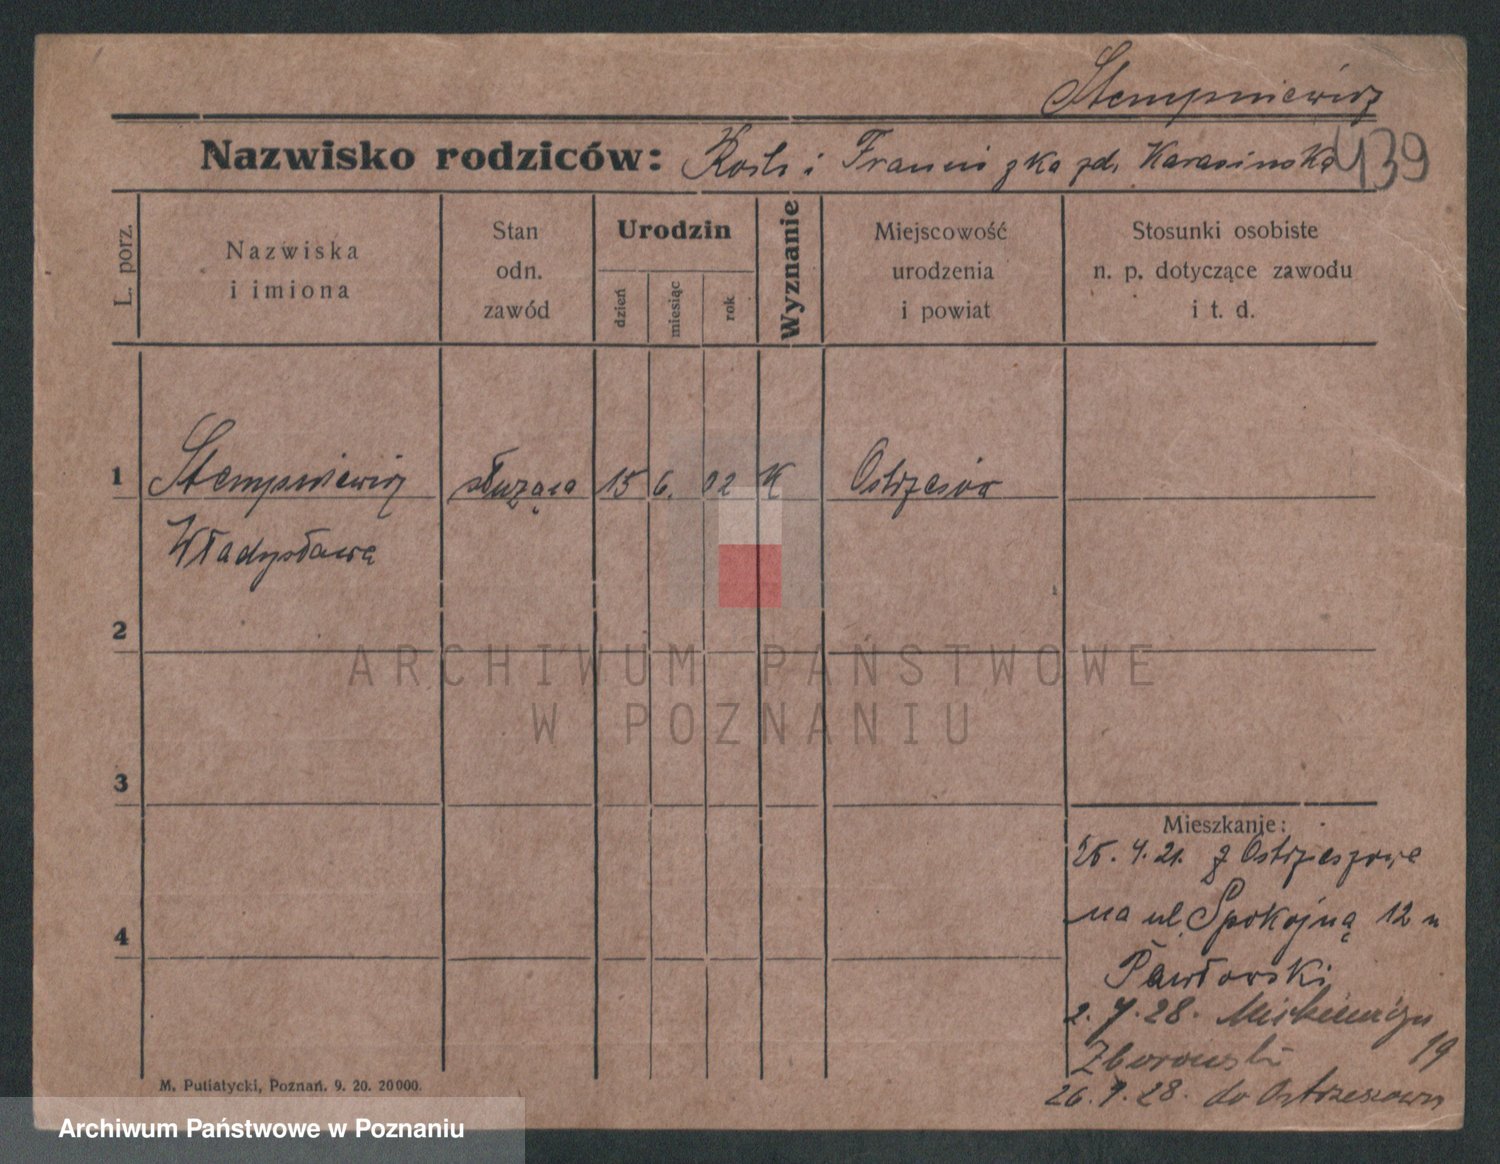 Stempniewicz
Nazwisko rodziców: i Franciszka zd. Karasińska 439
L. porz.
Nazwiska
i imiona
Stan
odn.
zawód
Urodzin
dzień
miesiąc
rok
Wyznanie
Miejscowość
urodzenia
i powiat
Stosunki osobiste
n. p. dotyczące zawodu
i t. d.
1 Stempniewicz służąca 15 6. 02 K
Władysława
2
ARCHIWUM PAŃSTWOWE
W POZNANIU
3
Mieszkanie:
25. 4. 21. z Ostrzeszowa
na ul. Spokojną 12 u
4
Pawłowski
2. 7. 28. Mickiewicza
Zborowski 19
26. 7. 28. do Ostrzeszowa
M. Putiatycki, Poznań. 9. 20. 20000.
Archiwum Państwowe w Poznaniu